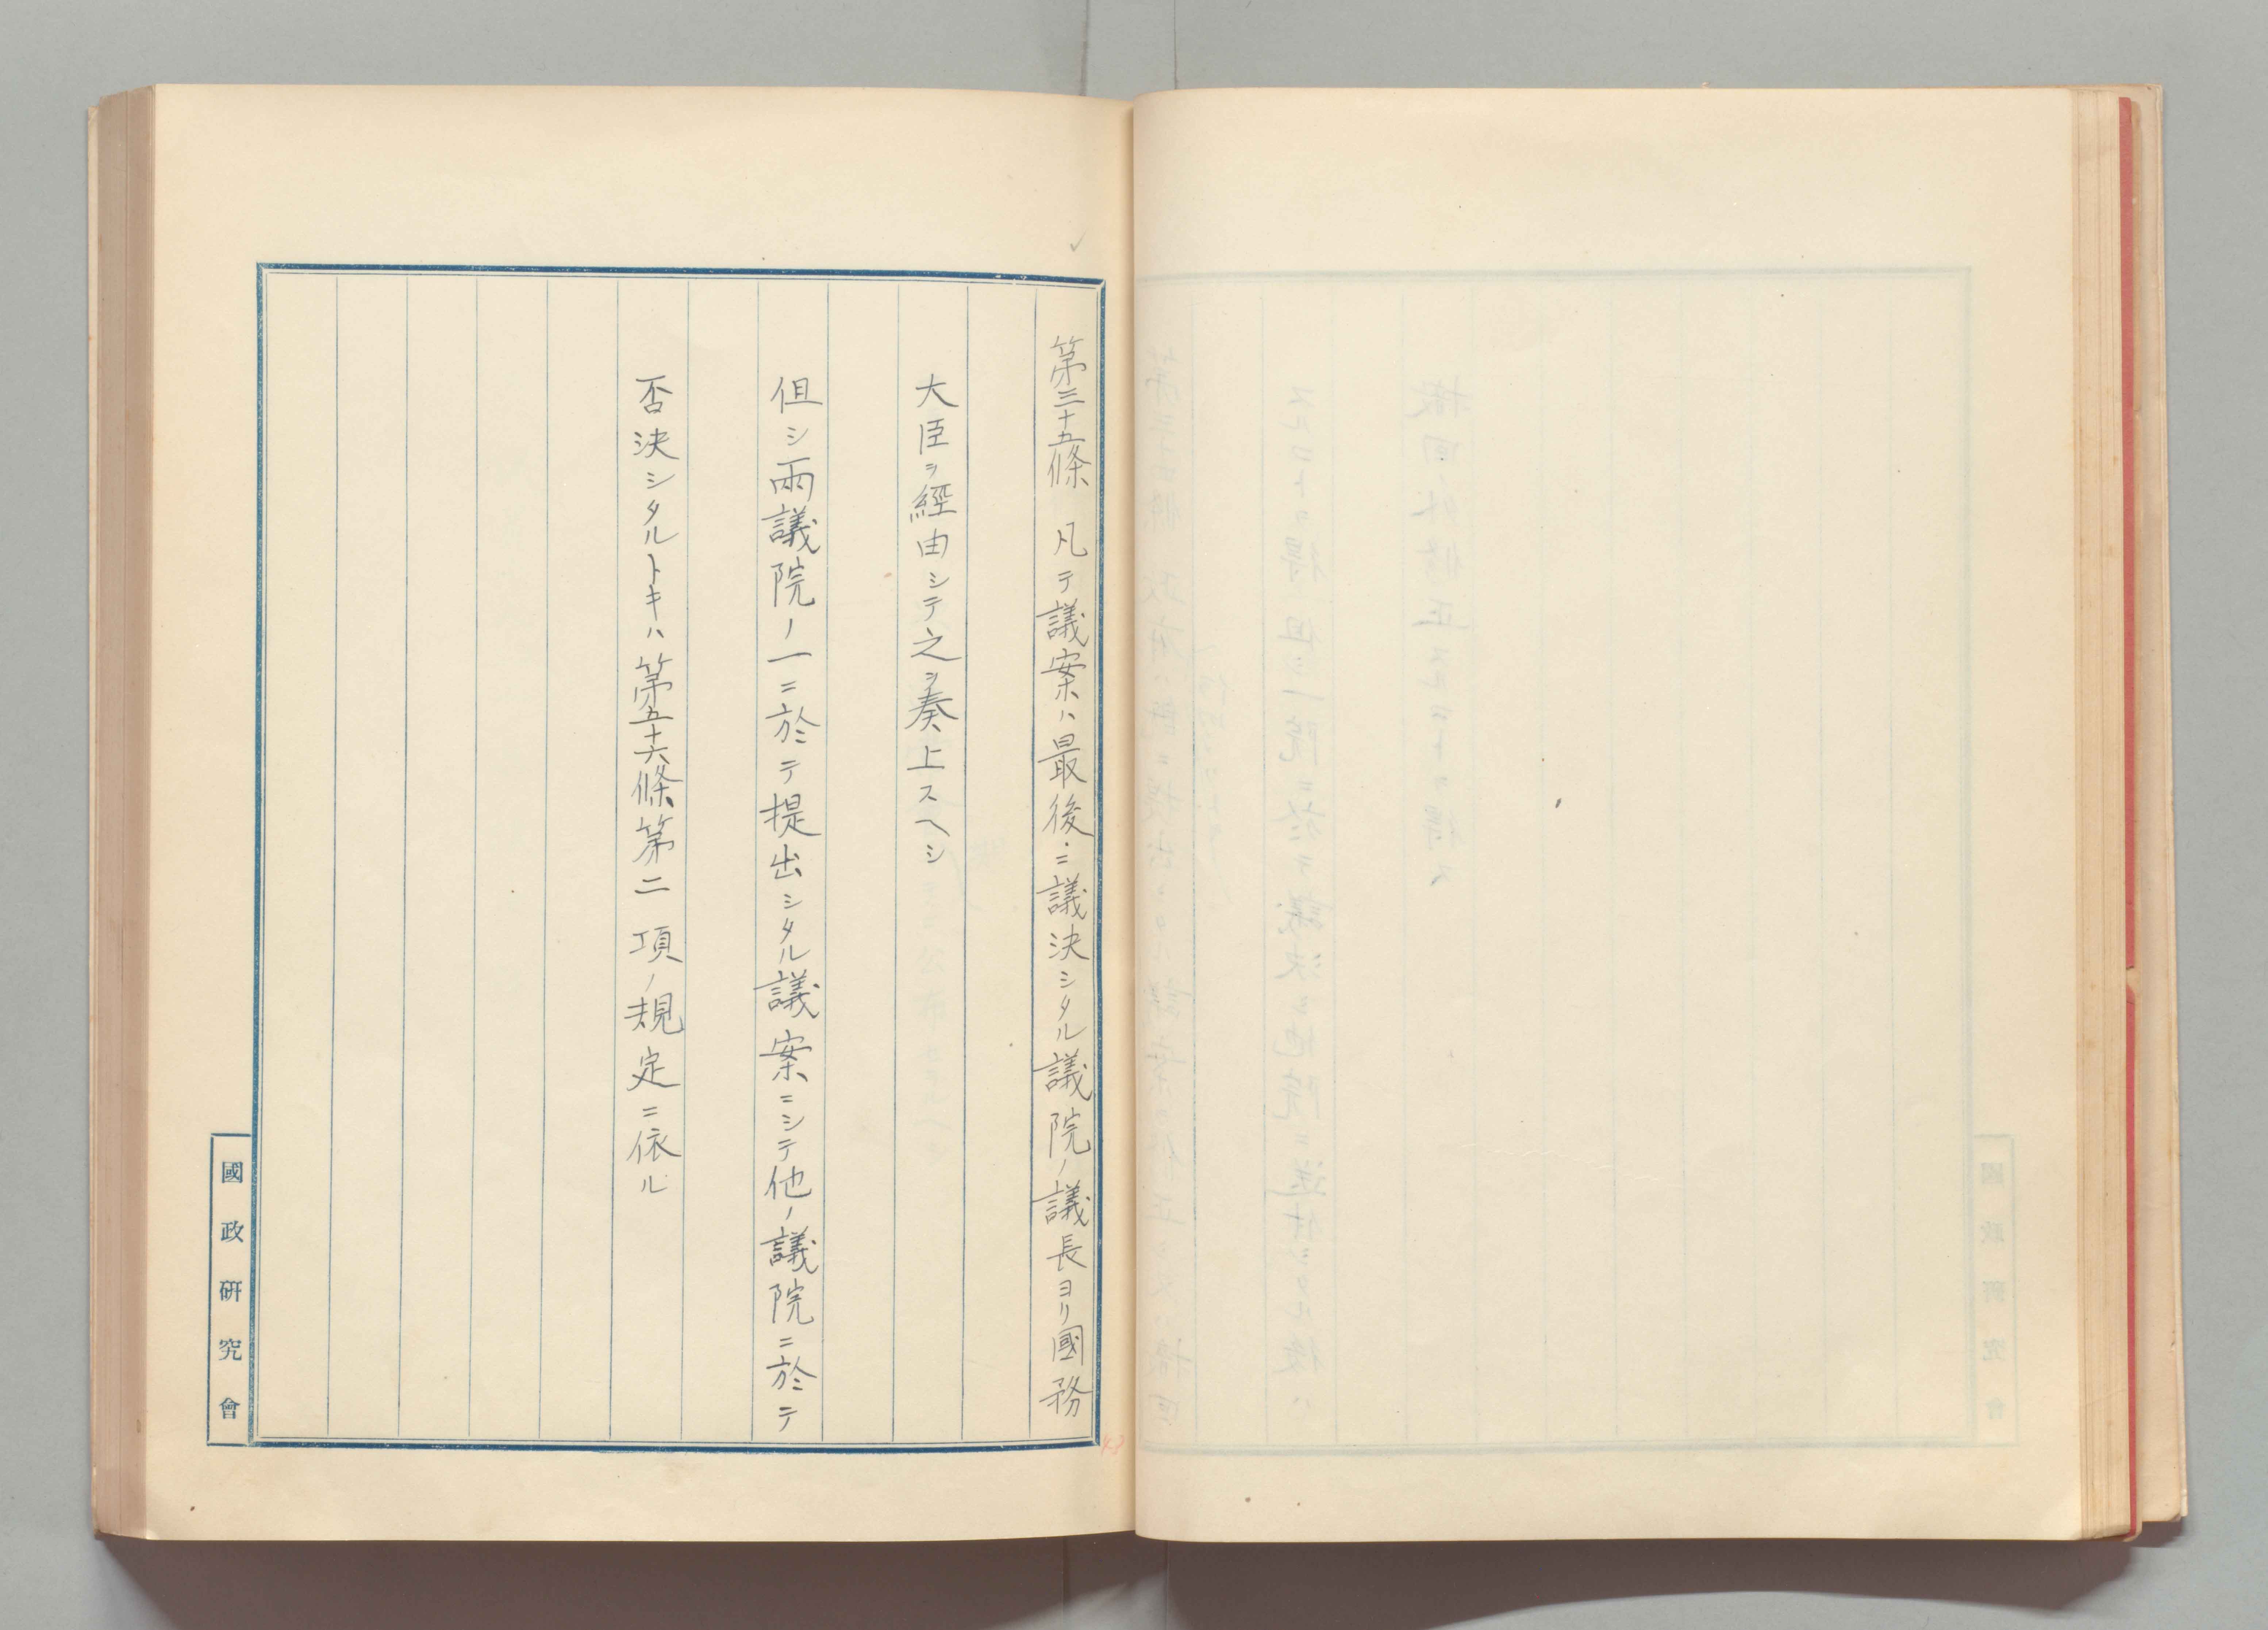 第三十五條 凡テ議案ハ最後ニ議決シタル議院ノ議長ヨリ國務
大臣ヲ經由シテ之ヲ奏上スヘシ
但シ兩議院ノ一ニ於テ提出シタル議案ニシテ他ノ議院ニ於テ
否決シタルトキハ第五十六條第二項ノ規定ニ依ル
國政研究會
48